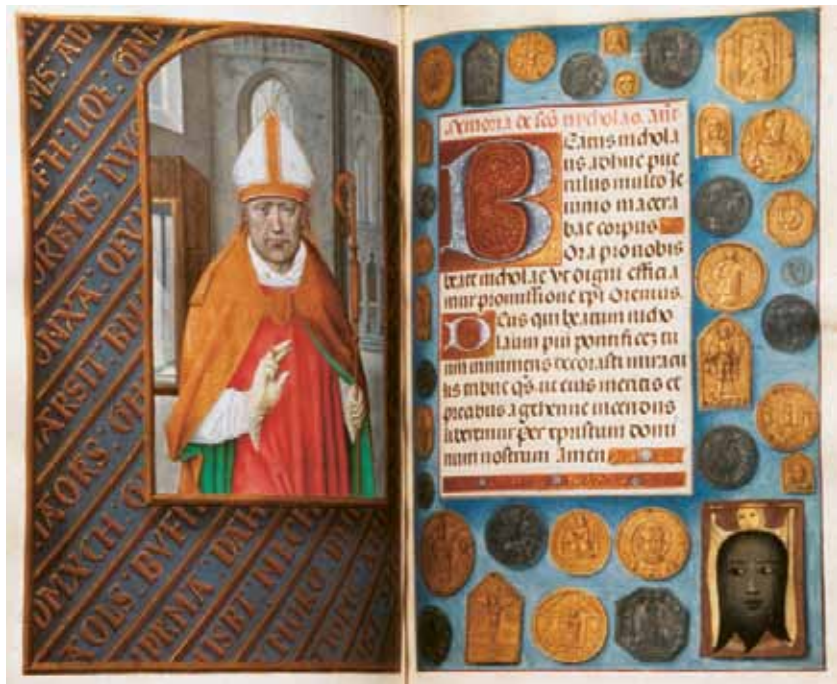 MS · AD
FH · LOE · ONS
OREMS · NVG
ONXA · OEV
ARSIT · BM
IAORS · CH
OMXCH · O
TOLS · BVFI
IPEMA · DAR
LISBT · NECH
Memoria de sco nicholao. ant
Beatus nichola
us adhuc pue
rulus multo ie
iunio macera
bat corpus
Ora pro nobis
beate nicholae Ut digni efficia
mur promissione xpi Oremus.
Deus qui beatum nicho
laum pium pontificez tu
um innumeris decorasti miracu
lis tribue qs. ut eius meritis et
precibus a gehenne incendiis
liberemur per xpristum domi
num nostrum Amen